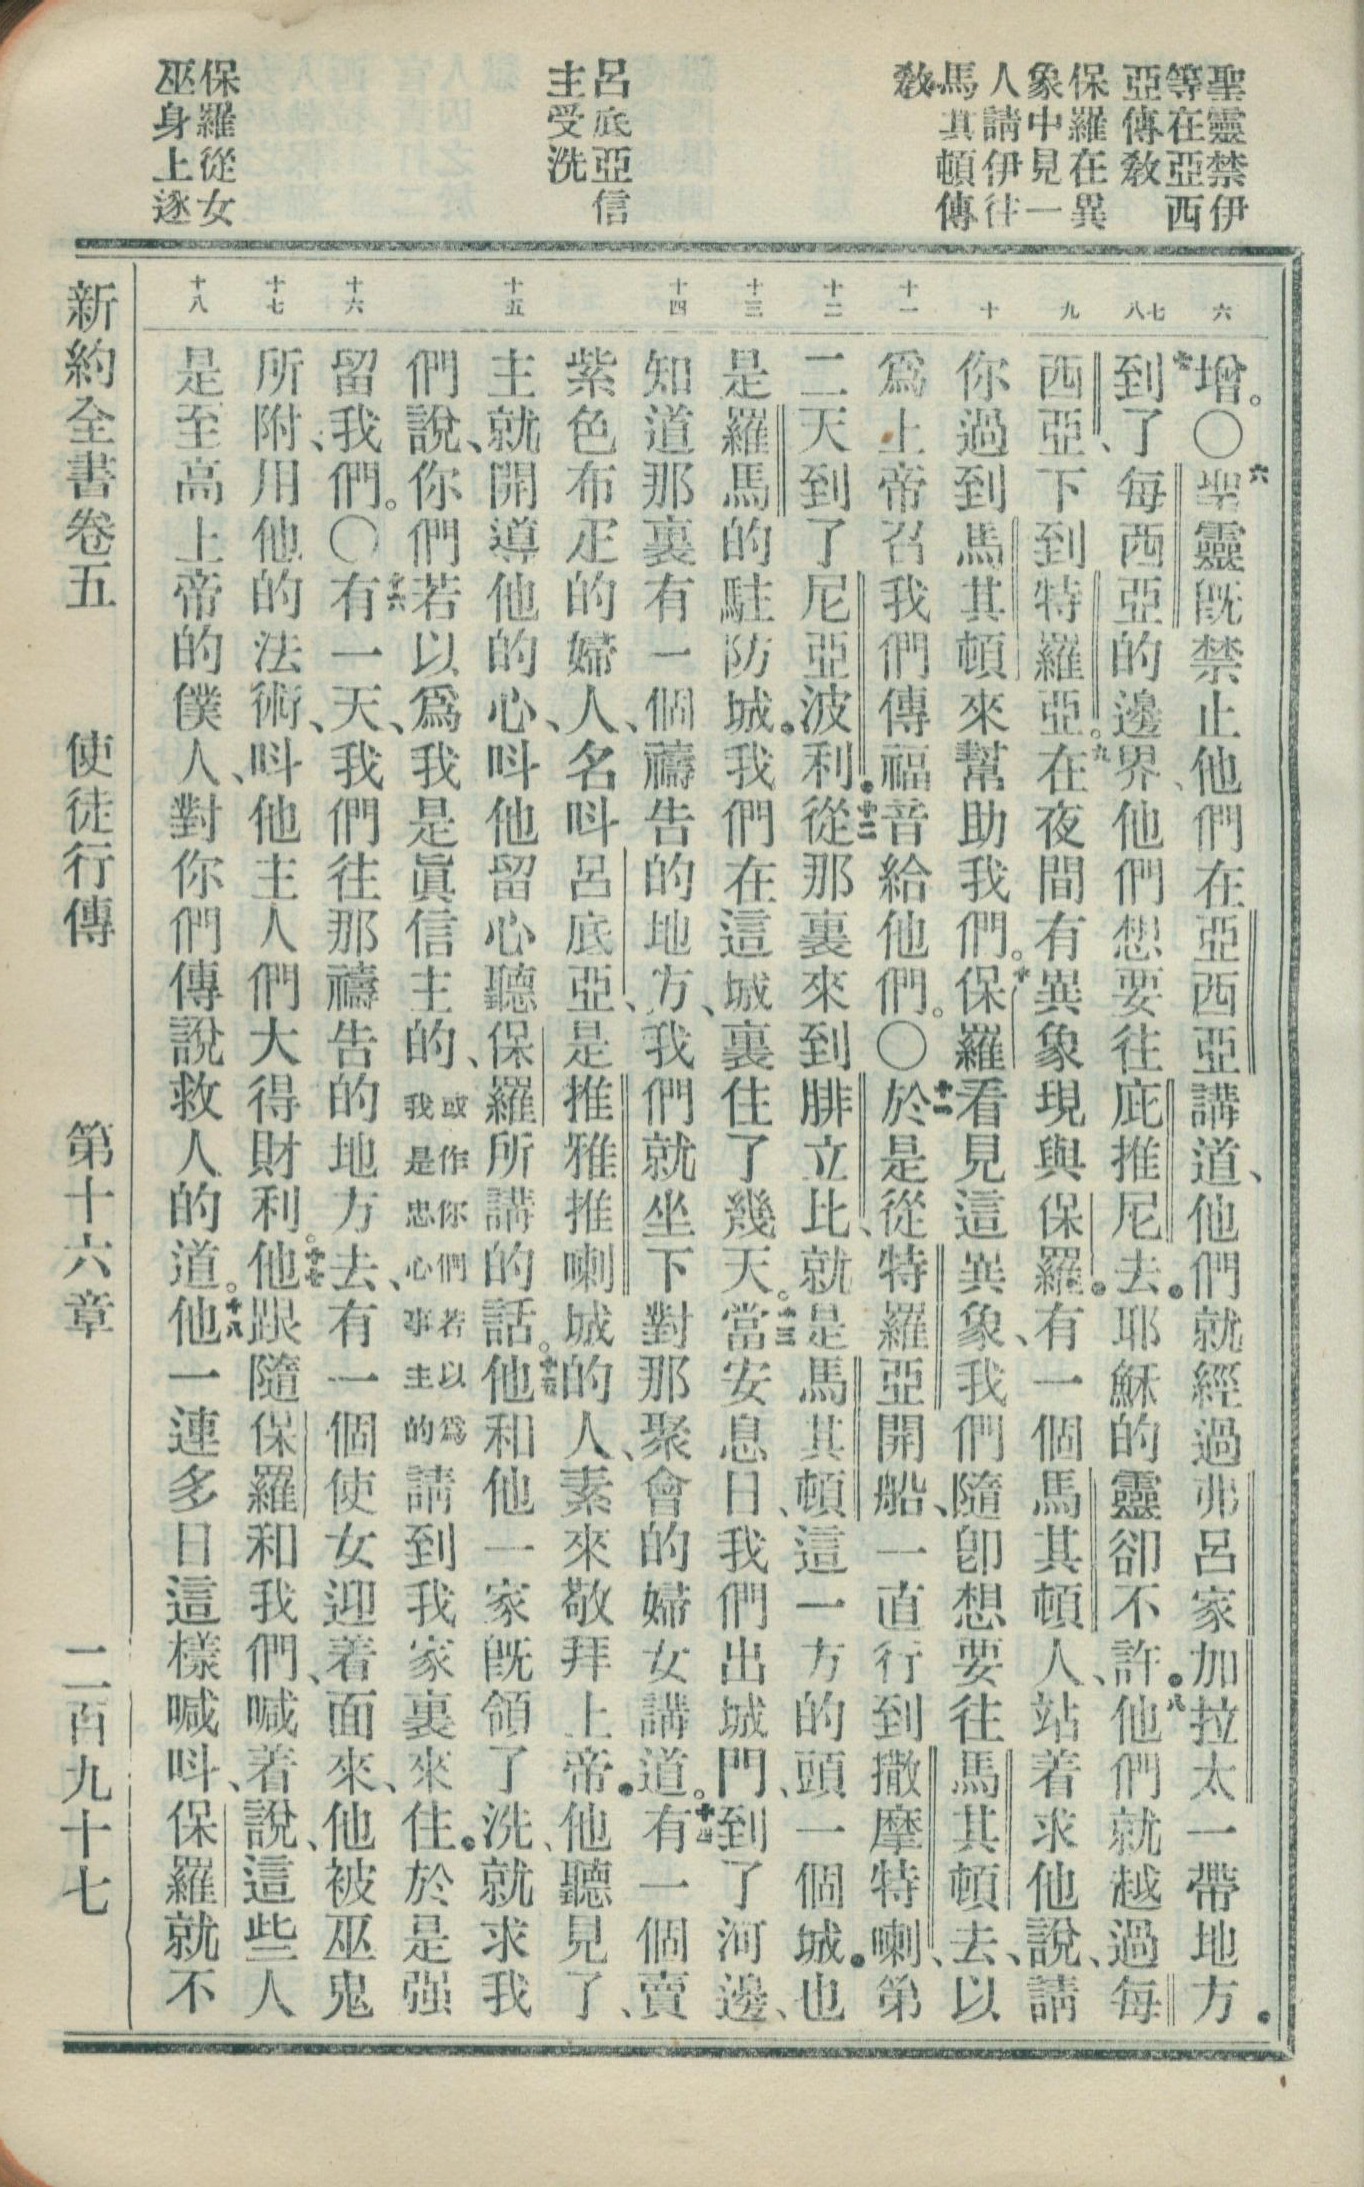 聖靈禁伊
等在亞西
亞傳敎
保羅在異
象中見一
人請伊往
馬其頓傳
敎
呂底亞信
主受洗
保羅從女
巫身上逐
六
七
八
九
十
十一
十二
十三
十四
十五
十六
十七
十八
增。〇六聖靈旣禁止他們在亞西亞講道、他們就經過弗呂家加拉太一帶地方。
七到了每西亞的邊界、他們想要往庇推尼去。耶穌的靈卻不許。八他們就越過每
西亞、下到特羅亞。九在夜間有異象現與保羅。有一個馬其頓人、站着求他說、請
你過到馬其頓來幫助我們。十保羅看見這異象、我們隨卽想要往馬其頓去、以
爲上帝召我們傳福音給他們。〇十一於是從特羅亞開船、一直行到撒摩特喇、第
二天到了尼亞波利。十二從那裏來到腓立比、就是馬其頓這一方的頭一個城。也
是羅馬的駐防城。我們在這城裏住了幾天。十三當安息日、我們出城門、到了河邊、
知道那裏有一個禱告的地方、我們就坐下對那聚會的婦女講道。十四有一個賣
紫色布疋的婦人、名呌呂底亞、是推雅推喇城的人、素來敬拜上帝。他聽見了、
主就開導他的心、呌他留心聽保羅所講的話。十五他和他一家旣領了洗、就求我
們說、你們若以爲我是眞信主的、或作你們若以爲我是忠心事主的請到我家裏來住。於是强
留我們。〇十六有一天、我們往那禱告的地方去、有一個使女迎着面來、他被巫鬼
所附、用他的法術、呌他主人們大得財利。十七他跟隨保羅和我們、喊着說、這些人
是至高上帝的僕人、對你們傳說救人的道。十八他一連多日這樣喊呌、保羅就不
新約全書卷五 使徒行傳 第十六章 二百九十七